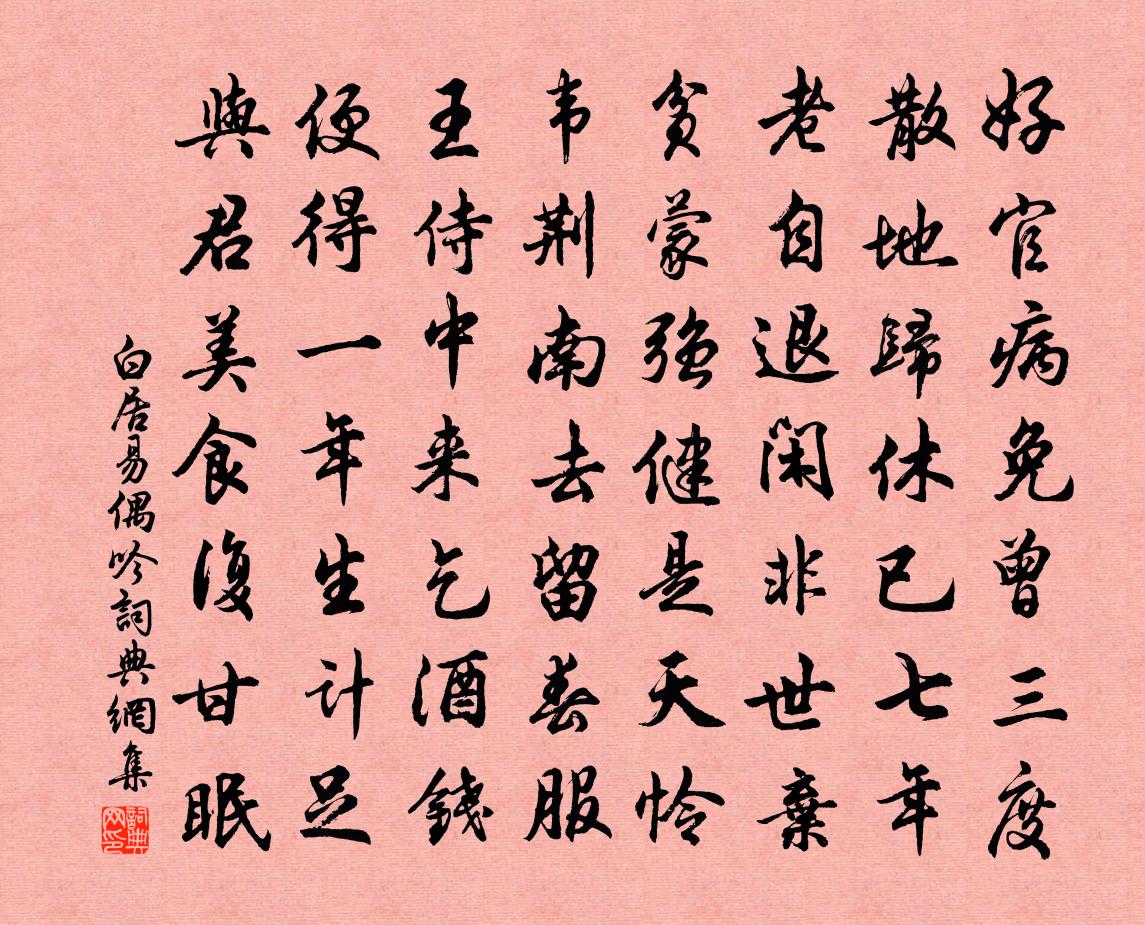 好官病免曾三度
散地歸休已七年
老自退闲非世棄
貧蒙強健是天怜
韦荆南去留春服
王侍中来乞酒錢
便得一年生计足
與君美食復甘眠
白居易偶吟詞典網集
詞典网印